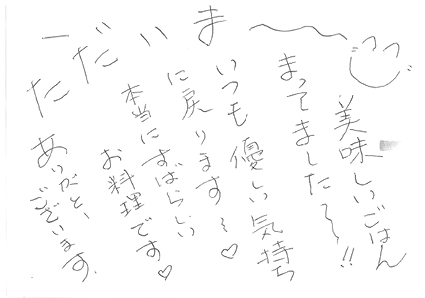 ただいま〜
美味しいごはん
まってました〜!!
いつも優しい気持ち
に戻ります〜♡
本当にすばらしい
お料理です♡
ありがと、
ございます.